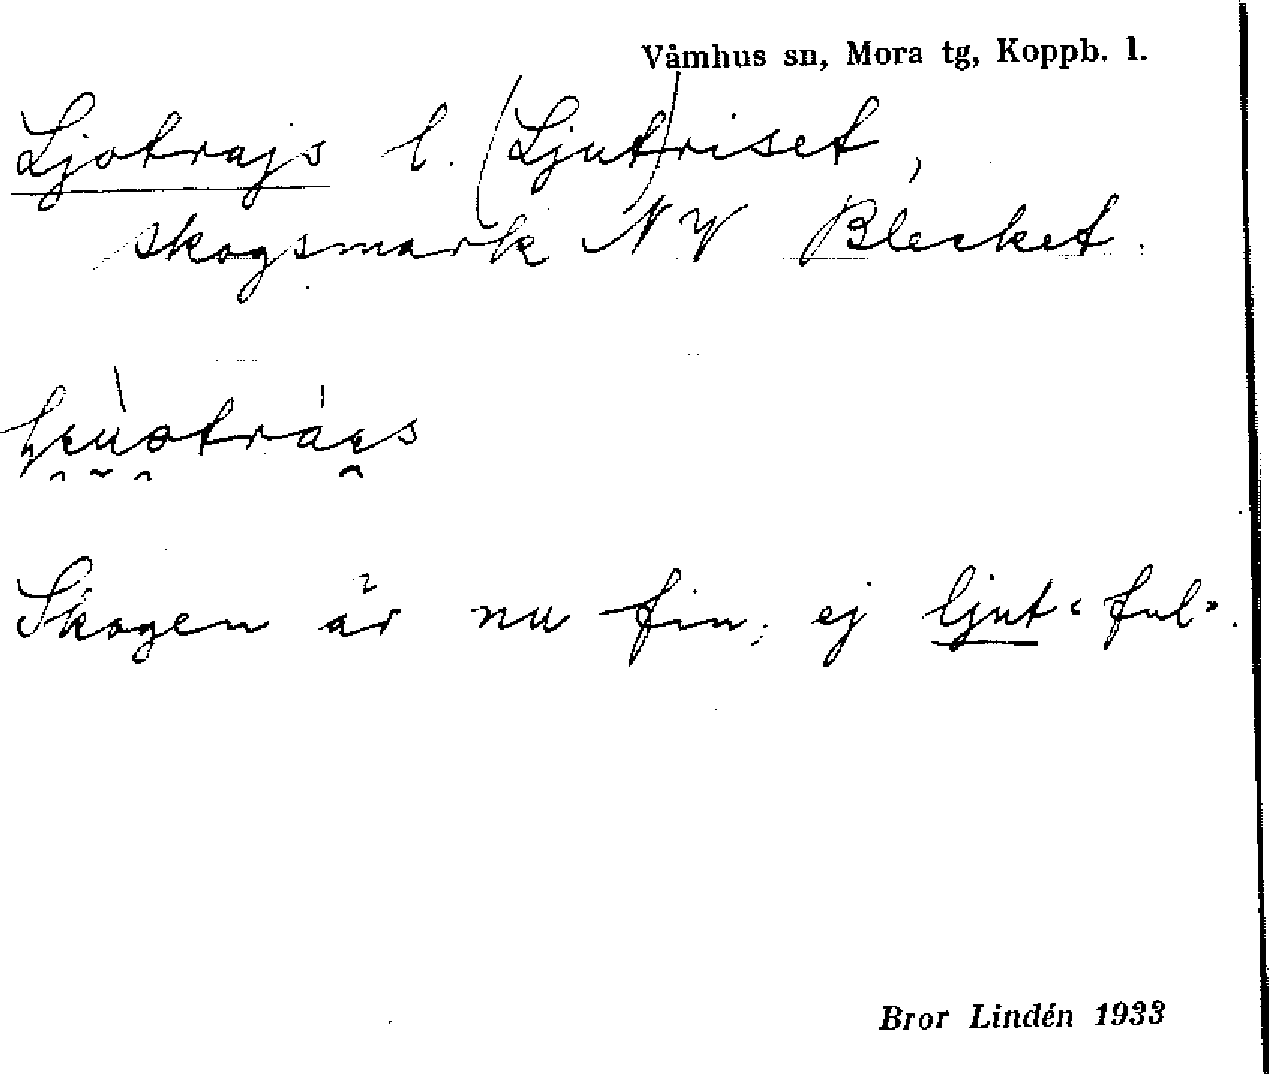 Våmhus sn, Mora tg, Koppb. l.
Ljotrajs l. (Ljut)riset,
skogsmark NV Blecket.
Skogen är nu fin, ej ljut "ful".
Bror Lindén 1933